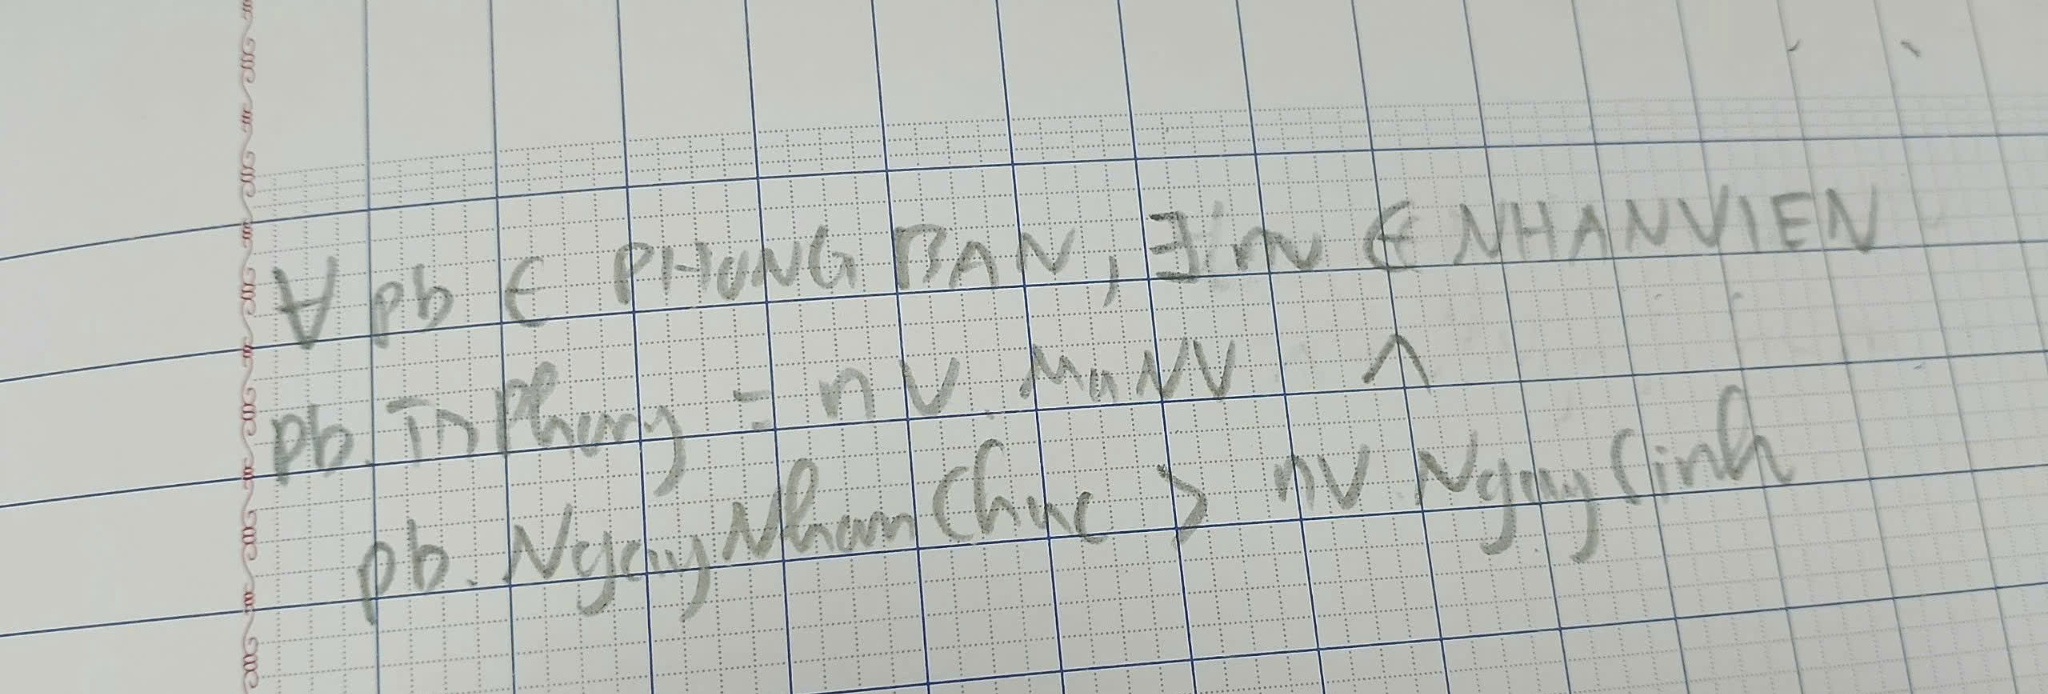 ∀ pb ∈ PHONGBAN, ∃ nv ∈ NHANVIEN
pb. TrPhong = nv. MaNV ∧
pb. NgayNhanChuc > nv. NgaySinh